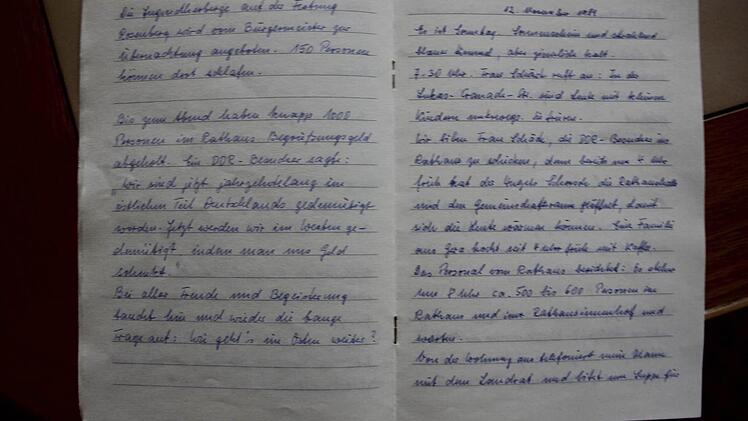 Die Jugendherberge auf der Festung
Rosenberg wird vom Bürgermeister zur
Übernachtung angeboten. 150 Personen
können dort schlafen.
Bis zum Abend haben knapp 1000
Personen im Rathaus Begrüßungsgeld
abgeholt. Ein DDR-Besucher sagte:
"Wir sind jetzt jahrzehntelang im
östlichen Teil Deutschlands gedemütigt
worden. Jetzt werden wir im Westen ge-
demütigt, indem man uns Geld
schenkt."
Bei aller Freude und Begeisterung
taucht hin und wieder die bange
Frage auf: Wie geht's im Osten weiter?
12. November 1989
Es ist Sonntag. Sonnenschein und strahlend
blauer Himmel, aber ziemlich kalt.
7.30 Uhr. Frau Schück ruft an: In der
Lukas-Cranach-Str. sind Leute mit kleinen
Kindern unterwegs. Sie frieren.
Wir bitten Frau Schück, die DDR-Besucher ins
Rathaus zu schicken, denn bereits um 4 Uhr
früh hat das die Rathaushalle
und den Gemeinschaftsraum geöffnet, damit
sich die Leute wärmen können. Eine Familie
aus Gera kocht seit 4 Uhr früh mit Kaffee.
Das Personal vom Rathaus berichtet: Es stehen
um 7 Uhr ca. 500 bis 600 Personen im
Rathaus und im Rathausinnenhof und
warten.
Von der Wohnung aus telefoniert mein Mann
mit dem Landrat und bittet um Suppe für